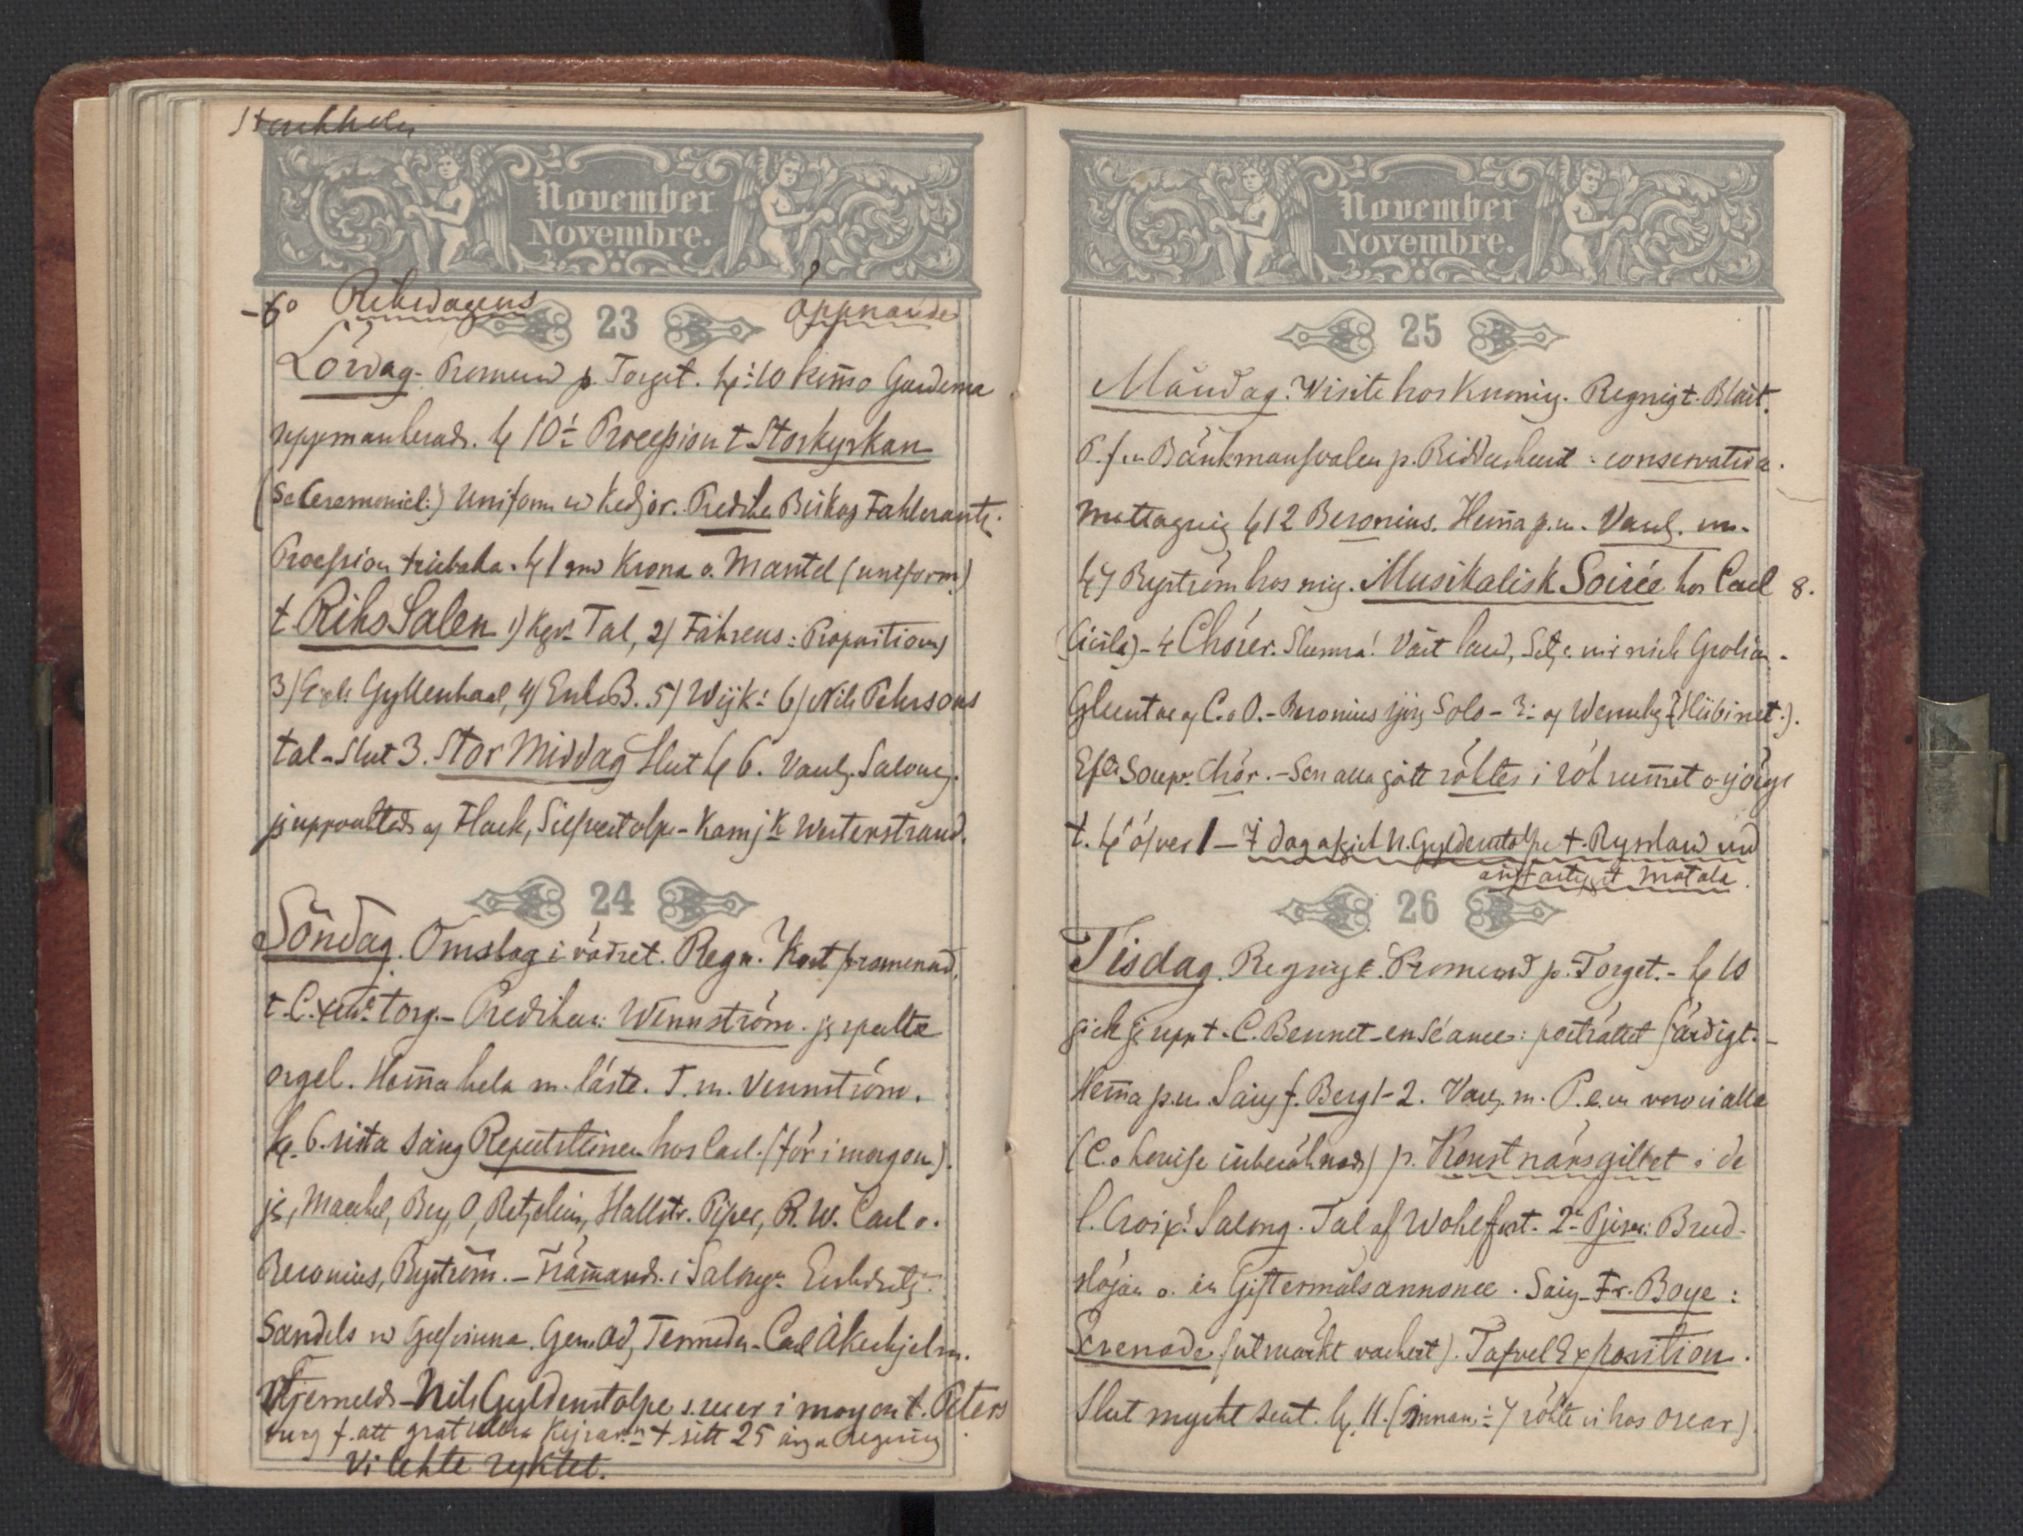 Stockholm
November
Novembre.
-6° Riksdagens 23 öppnande
Lördag. Promend p. Torget. kl: 10 Garderna
uppmanherads. kl 10½ Procession t. Storkyrkan
(Se Ceremoniel:) Uniform w Kedjor. Predika Biskop Fahlcrantz.
Procession tillbaka. kl 1 Krona o. Mantel (uniform)
t RiksSalen 1) Tal, 2) Fåhreus: Propositions
3) Gyllenhaal, 4) B. 5) Wijk: 6) Nils Pehrsons
tal - Slut 3. Stor Middag Slut kl 6. Vanl. Salong.
jg uppvaktads af Flack, Kamj K Westerstrand.
24
Söndag. Omslag i vädret. Regn. Kort promenad,
t. C. torg. - Predikar: Wennström. jg spelte
orgel. Hemma hela m. läste. T. m. Vennström.
kl. 6. sista sång Repetitionen hos Carl. (för i morgon).
jg, Maechel, Bey, O, Retzelius, Hallstr. Piper, R. W. Carl o.
Beronius, Byström. - Främande. i Salong:
Sandels w Grefvinna. Gen. Carl Åkerhjelm.
Stjerneld - Nils Gyldenstolpe i morgon t. Peters
burg f. att gratulera t. sitt 25 åriga Regering
Vi lekte ryktet.
November
Novembre.
25
Måndag. Visite hos Kronig. Regnigt. Blåst.
P. f. m. p. Riddarhuset: conservativa.
mottagnig kl 12 Beronius. Hemma p. m. Vanl. m.
kl 7 Byström hos mig. Musikalisk Soirée hos Carl 8.
(Cicila) - 4 Chörer. Stumma! Vårt land,
Gluntar af C. o O. - Beronius sjöng Solo - 3: af Wennbg. (Hübinet.).
Eft. Soup. Chör. - Sen alla gått röktes i rökrummet
t. kl öfver 1 - I dag afgick N. Gyldenstolpe t. Ryssland md
ångfartyget Motala.
26
Tisdag. Regnigt. Promend p. Torget. - kl 10
gick jg upp t. C. Bennet - en Séance: porträttet färdigt. -
Hemma p. m. Sång f. Berg 1-2. Vanl. m. P. e. m voro vi alla
(C. o Lovisa inberäknads) p. Konstnärsgillet i de
l. Croix's Salong. Tal af Wohlfart. 2: Pjeser: Brud-
slöjan o. en Giftermålsannonce. Sång - Fr. Boye:
Serenade (utmärkt vackert). Tafvel Exposition.
Slut mycket sent. kl. 11. (innan: 7 rökte vi hos Oscar).